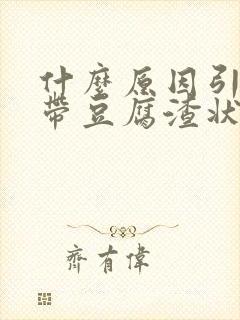 什麼原因引
帶豆腐渣狀
齊有偉